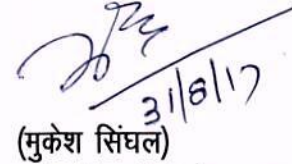 31/8/17
(मुकेश सिंघल)